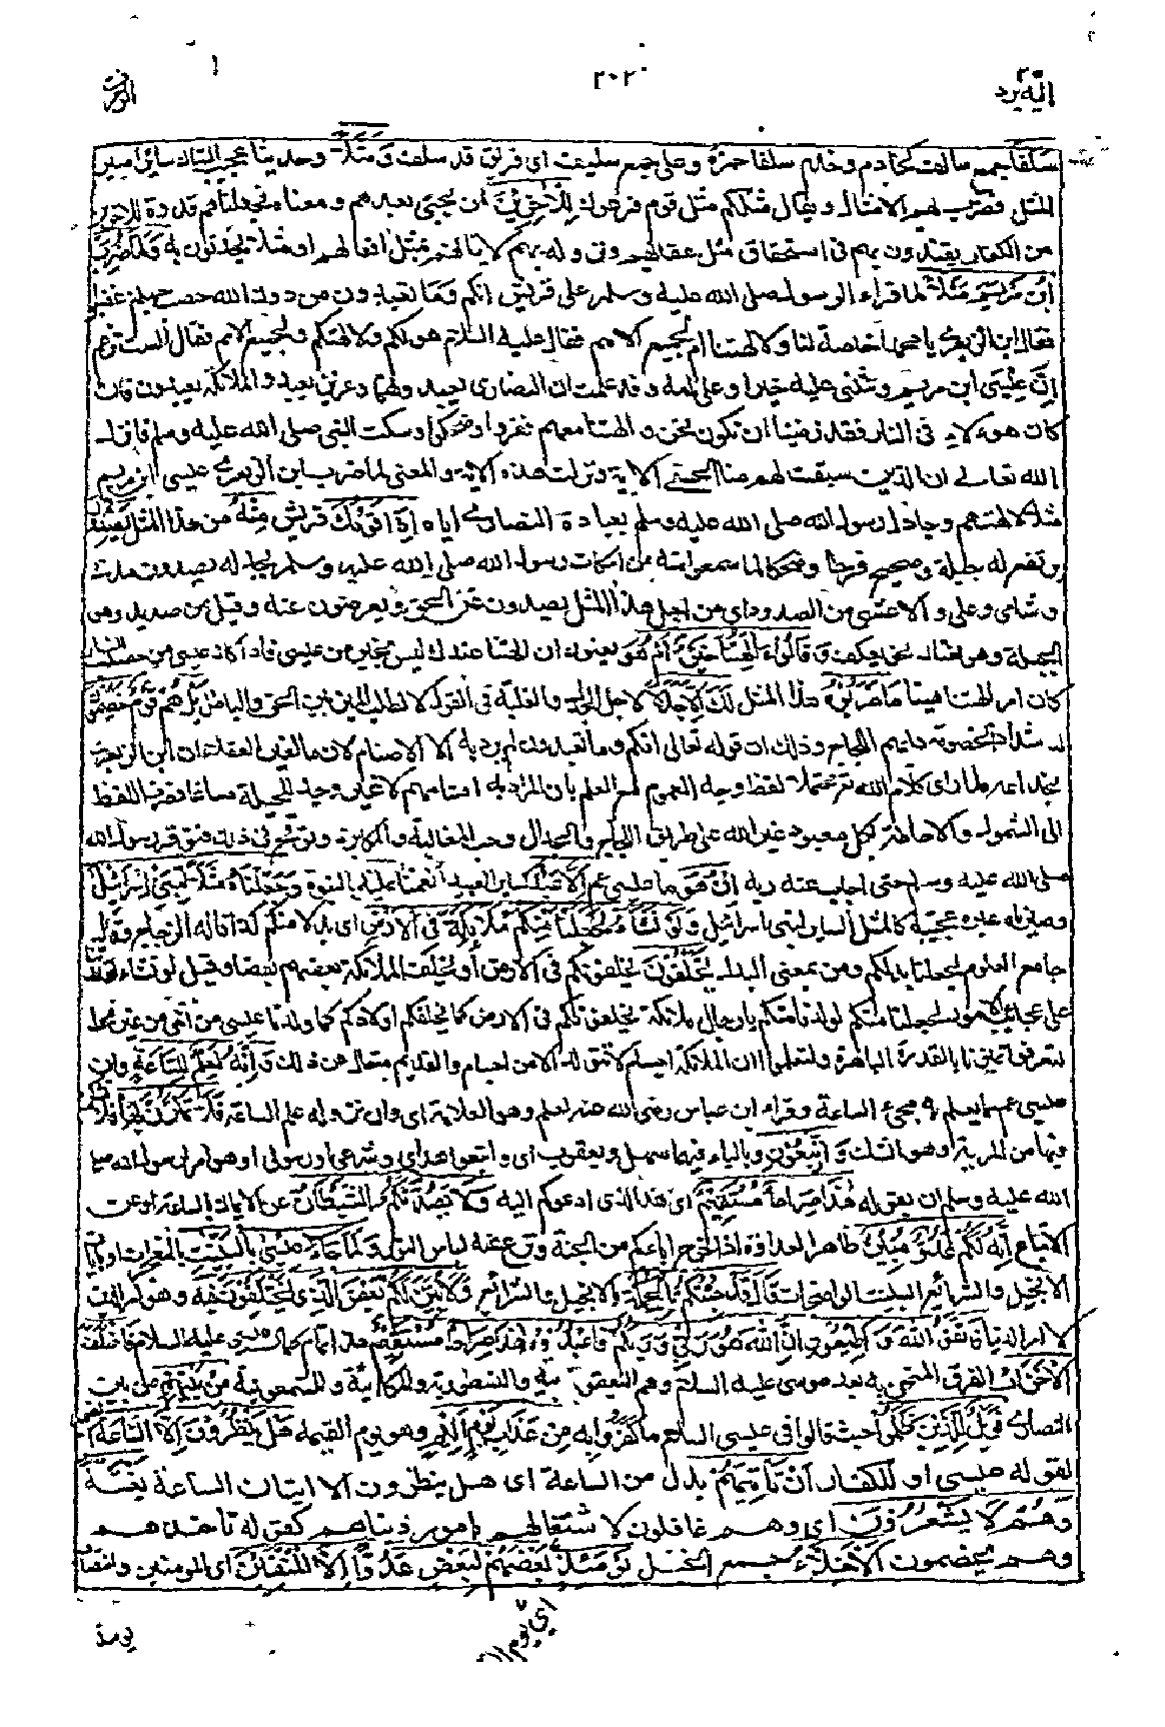 اليه يرد ٢٠٢ الزخرف
سلفا جمع سالف كخادم وخدم سلفا حمزة وعلى جمع سليف اى فريق قد سلف ومثلا وحديثا عجيب الشان سائرا مسير
المثل فضرب بهم الامثال ويقال مثلكم مثل قوم فرعون للآخرين لمن يجئ بعدهم ومعناه فجعلناهم قدوة للآخرين
من الكفار يقتدون بهم فى استحقاق مثل عقابهم ونزوله بهم لاتيانهم بمثل افعالهم او مثلا يحدثون به ولما ضرب
ابن مريم مثلا لما قرأ الرسول صلى الله عليه وسلم على قريش انكم وما تعبدون من دون الله حصب جهنم غضبوا
فقال ابن الزبعرى يا محمد اخاصة لنا ولآلهتنا ام لجميع الامم فقال عليه السلام هو لكم ولآلهتكم ولجميع الامم فقال الست تزعم
ان عيسى ابن مريم وتثنى عليه خيرا وعلى امه وقد علمت ان النصارى يعبدونهما وعزير يعبد والملائكة يعبدون فان
كان هؤلاء فى النار فقد رضينا ان نكون نحن وآلهتنا معهم ففرحوا وضحكوا وسكت النبى صلى الله عليه وسلم فانزل
الله تعالى ان الذين سبقت لهم منا الحسنى الآية ونزلت هذه الآية والمعنى لما ضرب ابن الزبعرى عيسى ابن مريم
مثلا لآلهتهم وجادل رسول الله صلى الله عليه وسلم بعبادة النصارى اياه اذا قومك قريش منه من هذا المثل يصدون
ترتفع له جلبة وضجيج فرحا وضحكا لما سمعوا منه من اسكات رسول الله صلى الله عليه وسلم بجدله يصدون مدنى
وشامى وعلى والاعشى من الصدود اى من اجل هذا المثل يصدون عن الحق ويعرضون عنه وقيل من صديد وهو
الجلبة وهو مثل نحو يعكف وقالوا ءآلهتنا خير ام هو يعنون ان آلهتنا عندك ليس بخير من عيسى فاذا كان عيسى من حصب النار
كان امر آلهتنا هينا ما ضربوه هذا المثل لك الا جدلا الا لاجل الجدل والغلبة فى القول لا لطلب الميز بين الحق والباطل بل هم قوم خصمون
لد شداد الخصومة دابهم اللجاج وذلك ان قوله تعالى انكم وما تعبدون لم يرد به الا الاصنام لان ما لغير العقلاء الا ان ابن الزبعرى
بخداعه لما راى كلام الله محتملا لفظه وجه العموم مع العلم بان المراد به اصنامهم لا غير وجد للحيلة مساغا فصرف اللفظ
الى الشمول والاحاطة بكل معبود غير الله على طريق اللجاج والجدال وحب المغالبة والمكابرة وتوقح فى ذلك فتوقر رسول الله
صلى الله عليه وسلم حتى اجاب عنه ربه ان هو ما عيسى عم الا عبد كسائر العبيد انعمنا عليه بالنبوة وجعلناه مثلا لبنى اسرائيل
وصيرناه عبرة عجيبة كالمثل السائر لبنى اسرائيل ولو نشاء لجعلنا منكم ملائكة فى الارض اى بدلا منكم كذا قاله الزجاج وقال
جامع العلوم لجعلنا بدلكم ومن بمعنى البدل يخلفون يخلفونكم فى الارض او يخلف الملائكة بعضهم بعضا وقيل لو نشاء لقدرتنا
على عجائب الامور لجعلنا منكم لولدنا منكم يا رجال ملائكة يخلفونكم فى الارض كما يخلفكم اولادكم كما ولدنا عيسى من انثى من غير فحل
لتعرفوا تميزنا بالقدرة الباهرة ولتعلموا ان الملائكة اجسام لا تتولد الا من اجسام والقديم متعال عن ذلك وانه لعلم للساعة وان
عيسى عم مما يعلم به مجئ الساعة وقرأ ابن عباس رضى الله عنه لعلم وهو العلامة اى وان نزوله علم الساعة فلا تمترن بها فلا تشكن
فيها من المرية وهو الشك واتبعون وبالياء فيهما سهل ويعقوب اى واتبعوا هداى وشرعى او رسولى او هو امر لرسول الله صلى
الله عليه وسلم ان يقوله هذا صراط مستقيم اى هذا الذى ادعوكم اليه ولا يصدنكم الشيطان عن الايمان بالساعة او عن
الاتباع انه لكم عدو مبين ظاهر العداوة اذ اخرج اباكم من الجنة ونزع عنه لباس النور ولما جاء عيسى بالبينت بالمعجزات او بآيات
الانجيل والشرائع البينت الواضحات قال قد جئتكم بالحكمة الانجيل والشرائع ولابين لكم بعض الذى تختلفون فيه وهو امر الدين
لا امر الدنيا فاتقوا الله واطيعون ان الله هو ربى وربكم فاعبدوه هذا صراط مستقيم هذا تمام كلام عيسى عليه السلام فاختلف
الاحزاب الفرق المتحزبة بعد عيسى عليه السلام وهم اليعقوبية والنسطورية والملكانية والشمعونية من بينهم من بين
النصارى فويل للذين ظلموا حيث قالوا فى عيسى السلام ما كفروا به من عذاب يوم اليم وهو يوم القيمة هل ينظرون الا الساعة
لقوله عيسى او للكفار ان تاتيهم بدل من الساعة اى هل ينظرون الا اتيان الساعة بغتة
وهم لا يشعرون اى وهم غافلون لاشتغالهم بامور دنياهم كقوله تاخذهم
وهم يخصمون الاخلاء جمع الخليل يومئذ بعضهم لبعض عدو الا المتقين اى المومنين وانتصاب
اى يوم
يومئذ